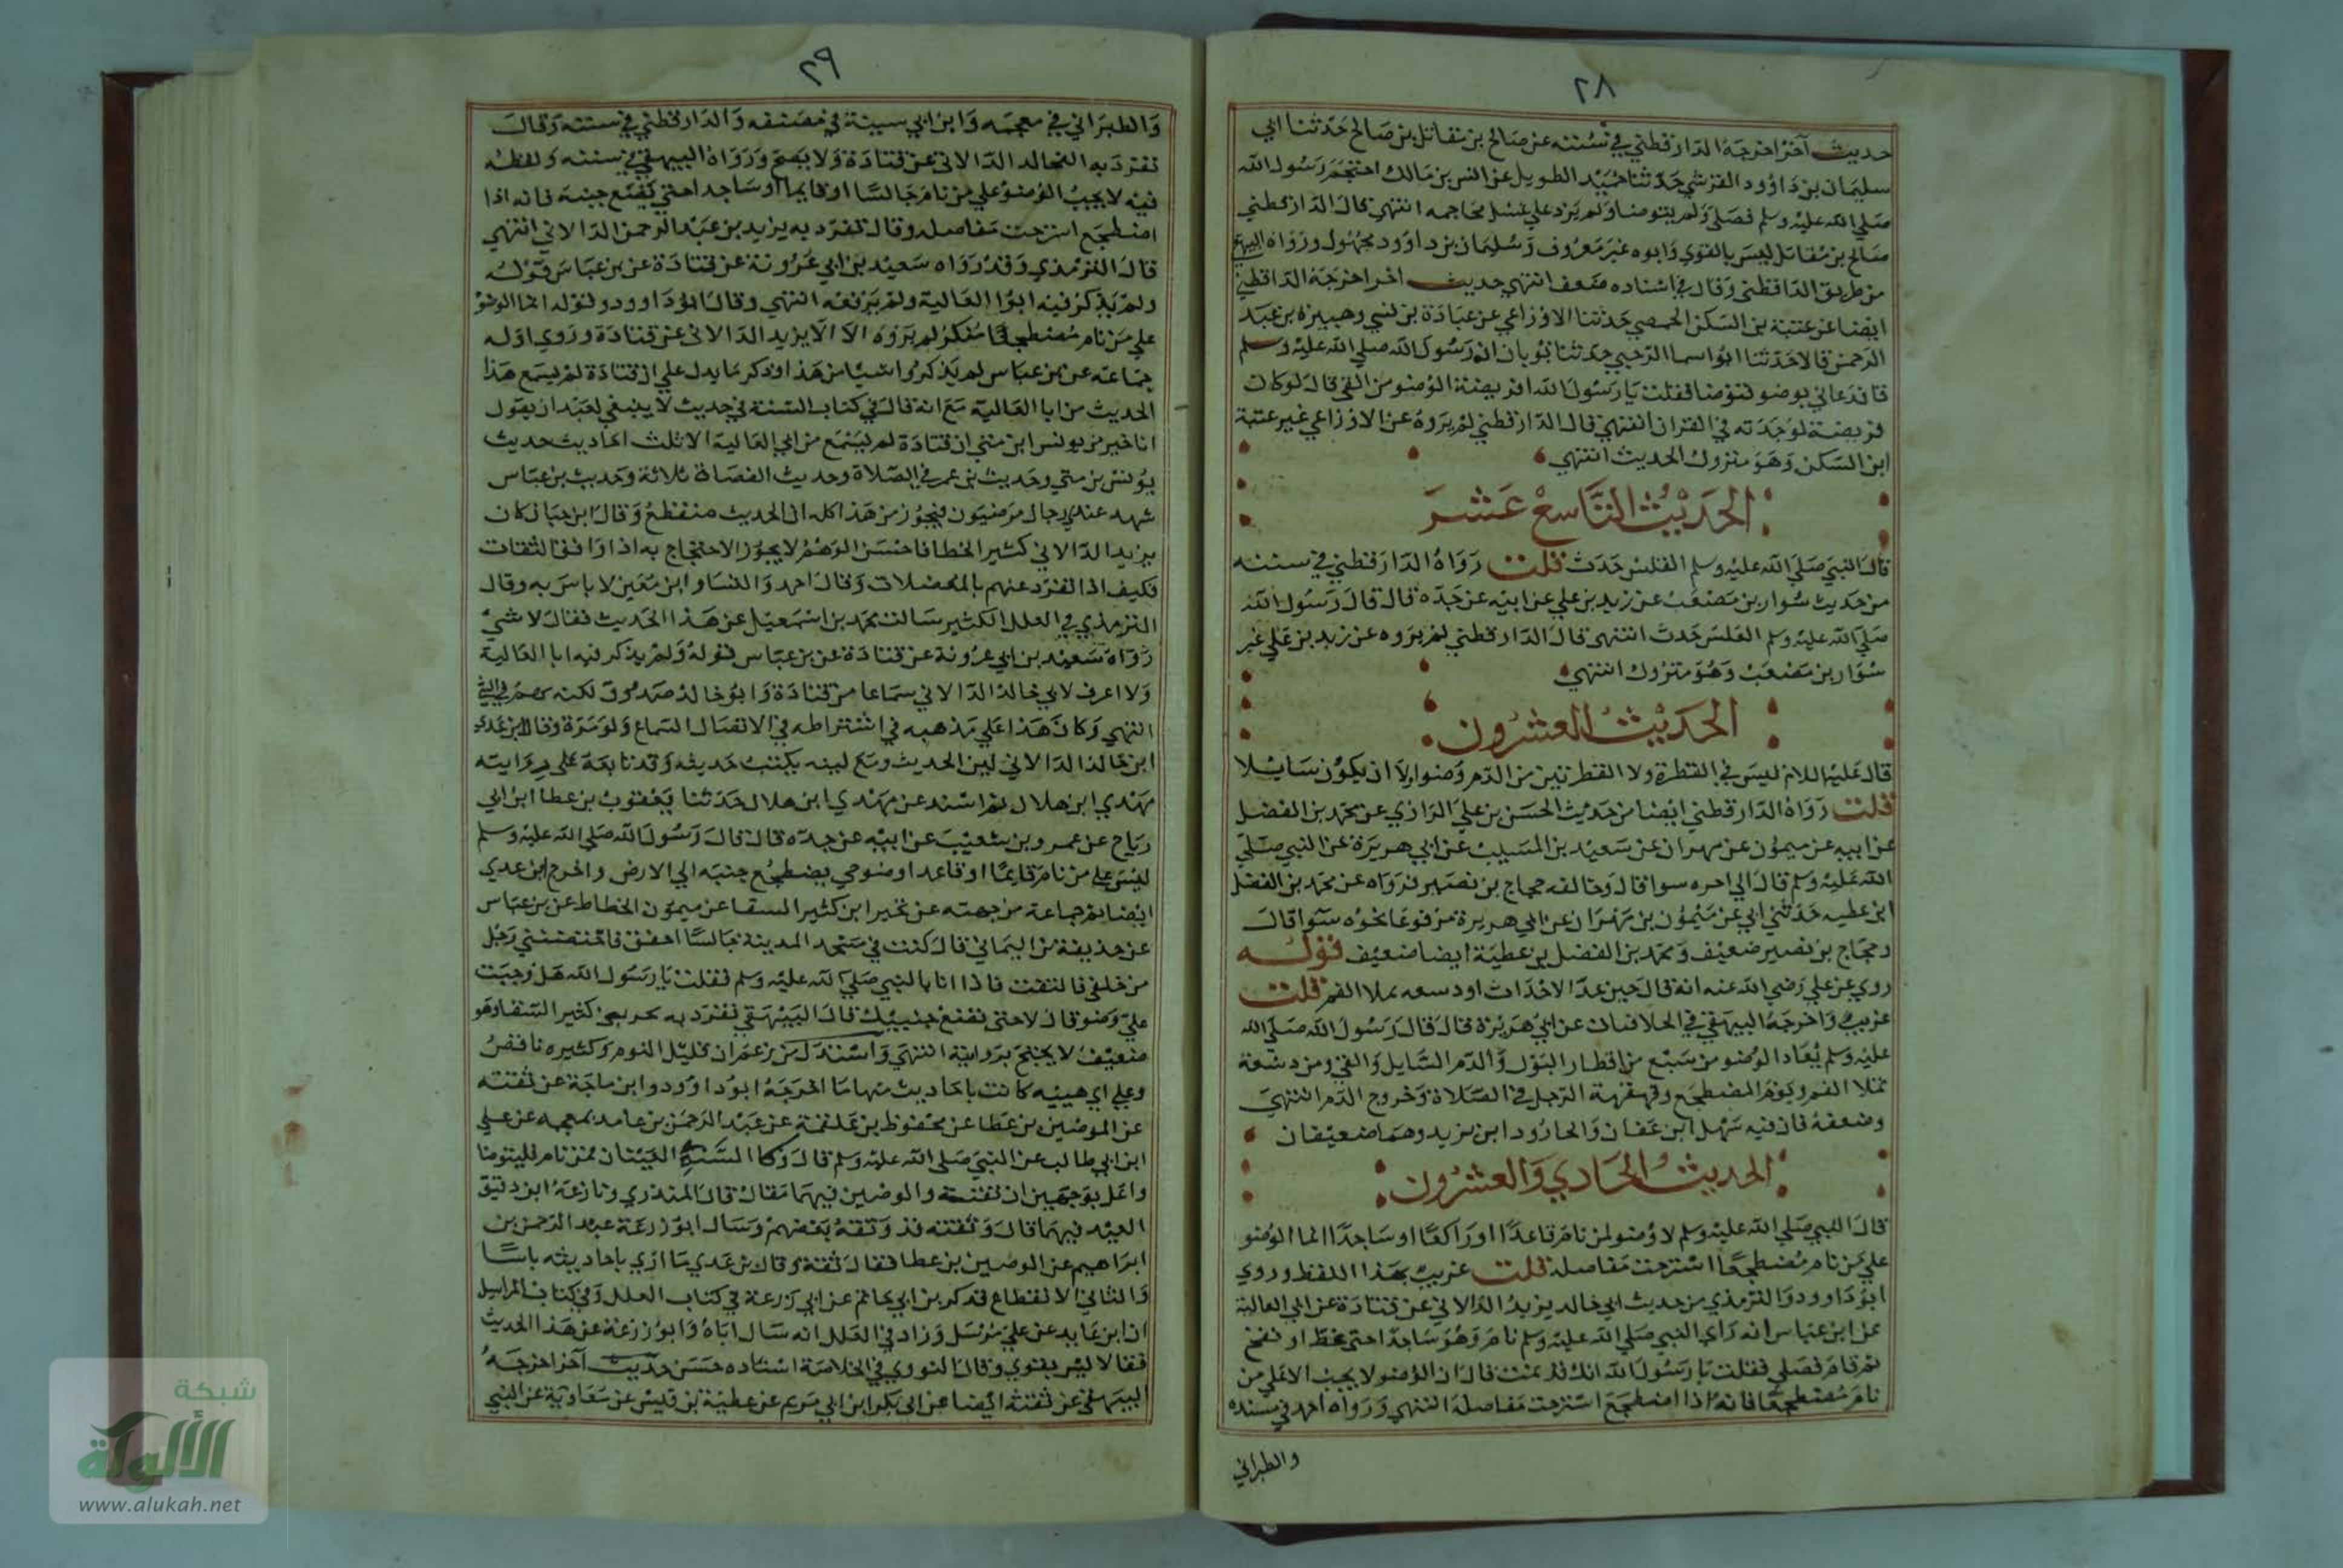 ٢٨
حديث آخر اخرجه الدارقطني في سننه عن صالح بن مقاتل بن صالح حدثنا ابي
سليمان بن داوود القرشي حدثنا حميد الطويل عن انس بن مالك احتجم رسول الله
صلي الله عليه وسلم فصلى ولم يتوضا ولم يزد علي غسل محاجمه انتهي قال الدارقطني
صالح بن مقاتل ليس بالقوي وابوه غير معروف وسليمان بن داوود مجهول ورواه البيهقي
من طريق الداقطني وقال في اسناده ضعف انتهي حديث اخر اخرجه الداقطني
ايضا عن عتبة بن السكن الحمصي حدثنا الاوزاعي عن عبادة بن نسي وهبيرة بن عبد
الرحمن قالا حدثنا ابو اسما الرحبي حدثنا ثوبان ان رسول الله صلي الله عليه وسلم
قا فدعاني بوضو فتوضا فقلت يا رسول الله افريضة الوضو من القي قال لو كان
فريضة لوجدته في القران انتهي قال الدارقطني لم يروه عن الاوزاعي غير عتبة
ابن السكن وهو متروك الحديث انتهي
الحديث التاسع عشر
قال النبي صلي الله عليه وسلم القلس حدث قلت رواه الدارقطني في سننه
من حديث سوار بن مصعب عن زيد بن علي عن ابيه عن جده قال قال رسول الله
صلي الله عليه وسلم القلس حدث انتهي قال الدارقطني لم يروه عن زيد بن علي غير
سوار بن مصعب وهو متروك انتهي
الحديث العشرون
قال عليه اللام ليس في القطرة ولا القطرتين من الدم وضوا ولا ان يكون سايلا
قلت رواه الدارقطني ايضا من حديث الحسن بن علي الرازي عن محمد بن الفضل
عن ابيه عن ميمون عن مهران عن سعيد بن المسيب عن ابي هريرة عن النبي صلي
الله عليه وسلم قال الي اخره سوا قال وخالفه حجاج بن نصير فرواه عن محمد بن الفضل
ابن عطيه حدثني ابي عن ميمون بن مهران عن ابي هريرة مرفوعا نحوه سوا قال
وحجاج بن نصير ضعيف ومحمد بن الفضل بن عطية ايضا ضعيف قوله
روي عن علي رضي الله عنه انه قال حين عد الاحداث اودسعه تملا الفم قلت
غريب واخرجه البيهقي في الخلافيات عن ابي هريرة قال قال رسول الله صلي الله
عليه وسلم يعاد الوضو من سبع من اقطار البول والدم السايل والقي ومن دسعة
تملا الفم ونوم المضطجع وقهقهة الرجل في الصلاة وخروج الدم انتهي
وضعفه فان فيه سهل ابن عفان والجارود ابن يزيد وهما ضعيفان
الحديث الحادي والعشرون
قال النبي صلي الله عليه وسلم لا وضو لمن نام قاعدا او راكعا او ساجدا انما الوضو
علي من نام مضطجعا استرخت مفاصله قلت غريب بهذا اللفظ وروي
ابو داوود والترمذي من حديث ابي خالد يزيد الدالاني عن قتادة عن ابي العالية
عن ابن عباس انه راي النبي صلي الله عليه وسلم نام وهو ساجد احتي غط او نفخ
ثم قام فصلي فقلت يا رسول الله انك قد نمت قال ان الوضو لا يجب الا علي من
نام مضطجعا فانه اذا اضطجع استرخت مفاصله انتهي ورواه احمد في مسنده
والطبراني
٢٩
والطبراني في معجمه وابن ابي سيبة في مصنفه والدارقطني في سننه وقال
تفرد به ابوخالد الدالاني عن قتادة ولا يصح ورواه البيهقي في سننه ولفظه
فيه لا يجب الوضو علي من نام جالسا او قايما او ساجد احتي يضع جنبه فانه اذا
اضطجع استرخت مفاصله وقال تفرد به يزيد بن عبد الرحمن الدالاني انتهي
قال الترمذي وقد رواه سعيد بن ابي عرونة عن قتادة عن بن عباس قوله
ولم يذكر فيه ابوا العالية ولم يرفعه انتهي وقال ابو داوود وقوله انما الوضو
علي من نام مضطجعا منكر لم يروه الا الا يزيد الدالاني عن قتادة وروي اوله
جماعه عن بن عباس لم يذكروا شيا من هذا وذكر ما يدل علي ان قتادة لم يسمع هذا
الحديث من ابا العالية مع انه قال في كتاب السنة في حديث لا ينبغي لعبد ان يقول
انا خير من يونس ابن متي ان قتادة لم يسمع من ابي العالية الا ثلث احاديث حديث
يونس بن متي وحديث بن عمر في الصلاة وحديث القضاة ثلاثة وحديث بن عباس
شهد عندي رجال مرضيون فيجوز من هذا كله ان الحديث منقطع وقال ابن حبان كان
يزيد الدالاني كثير الخطا فاحش الوهم لا يجوز الاحتجاج به اذا وافق الثقات
فكيف اذا انفرد عنهم بالمعضلات وقال احمد والنسا وابن معين لا باس به وقال
الترمذي في العلل الكثير سالت محمد بن اسمعيل عن هذا الحديث فقال لا شي
رواه سعيد بن ابي عرونة عن قتادة عن بن عباس قوله ولم يذكر فيه ابا العالية
ولا اعرف لابي خالد الدالاني سماعا من قتادة وابو خالد صدوق لكنه يهم في الشي
انتهي وكان هذا علي مذهبه في اشتراطه في الاتصال السماع ولو مرة وقال ابن عدي
ابن خالد الدالاني لين الحديث ومع لينه يكتب حديثه وقد تابعه علي روايته
مهدي ابن هلال ثم اسند عن مهدي ابن هلال حدثنا يعقوب بن عطا ابن ابي
رباح عن عمرو بن شعيب عن ابيه عن جده قال قال رسول الله صلي الله عليه وسلم
ليس علي من نام قايما او قاعدا وضو حي يضطجع جنبه الي الارض واخرج ابن عدي
ايضا ثم جماعة من جهته عن بحير ابن كثير السقا عن ميمون الخطاط عن بن عباس
عن حذيفة بن اليماني قال كنت في مسجد المدينة جالسا اخفق فاحتضنني رجل
من خلفي فالتفت فاذا انا بالنبي صلي الله عليه وسلم فقلت يا رسول الله هل وجبت
علي وضو قال لا حتي تضع جنبيك قال البيهقي تفرد به بحر بن كثير السقا وهو
ضعيف لا يحتج بروايته انتهي واستدل من زعم ان قليل النوم وكثيره ناقض
وعلي اي هييه كانت باحاديث منها ما اخرجه ابو داوود وابن ماجة عن ثقته
عن الموضين بن عطا عن محفوظ بن علقمة عن عبد الرحمن بن عامد عن علي
ابن ابي طالب عن النبي صلي الله عليه وسلم قال وكا السه العينان فمن نام فليتوضا
واعل بوجهين ان ثقته والوضين فيهما مقال قال المنذري ونازعه ابن دقيق
العيد فيهما قال وثقته قد وثقه بعضهم وسال ابو زرعة عبد الرحمن بن
ابراهيم عن الوضين بن عطا فقال ثقة وقال بن عدي ما اري باحاديثه باسا
والثاني الانقطاع فذكر بن ابي حاتم عن ابي زرعة في كتاب العلل وفي كتاب المراسيل
ان ابن عايد عن علي مرسل وزاد في العلل انه سال اباه وابو زرعة عن هذا الحديث
فقالا ليس بقوي وقال النووي في الخلاصة اسناده حسن حديث آخر اخرجه
البيهقي عن ثقته ايضا عن ابي بكر ابن ابي مريم عن عطية بن قليس عن معاوية عن النبي
شبكة
الألوكة
www.alukah.net